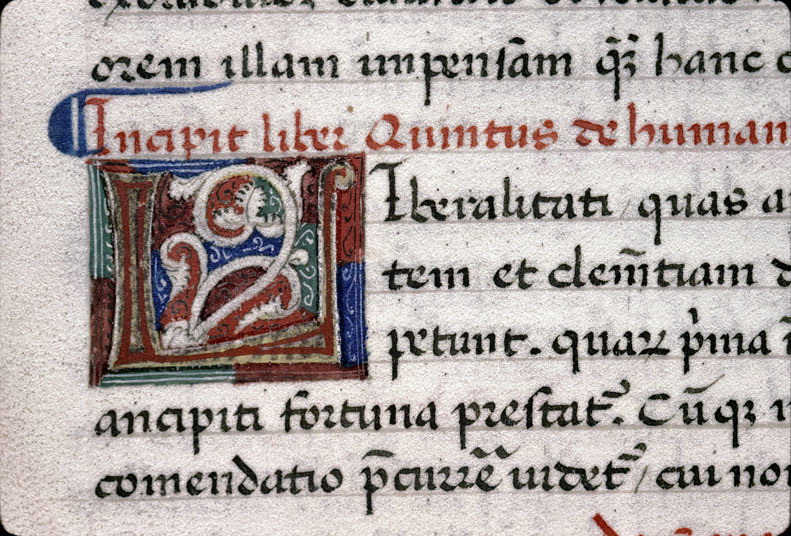 orem illam impensam q̃ꝫ hanc
Incipit liber Quintus de human
LIberalitati / quas a
tem et clem̃tiam
petunt. quaꝝ p̓ma
ancipiti fortuna prestatˀ. Cũqꝫ
comendatio p̃currẽ uidetˀ / cui no